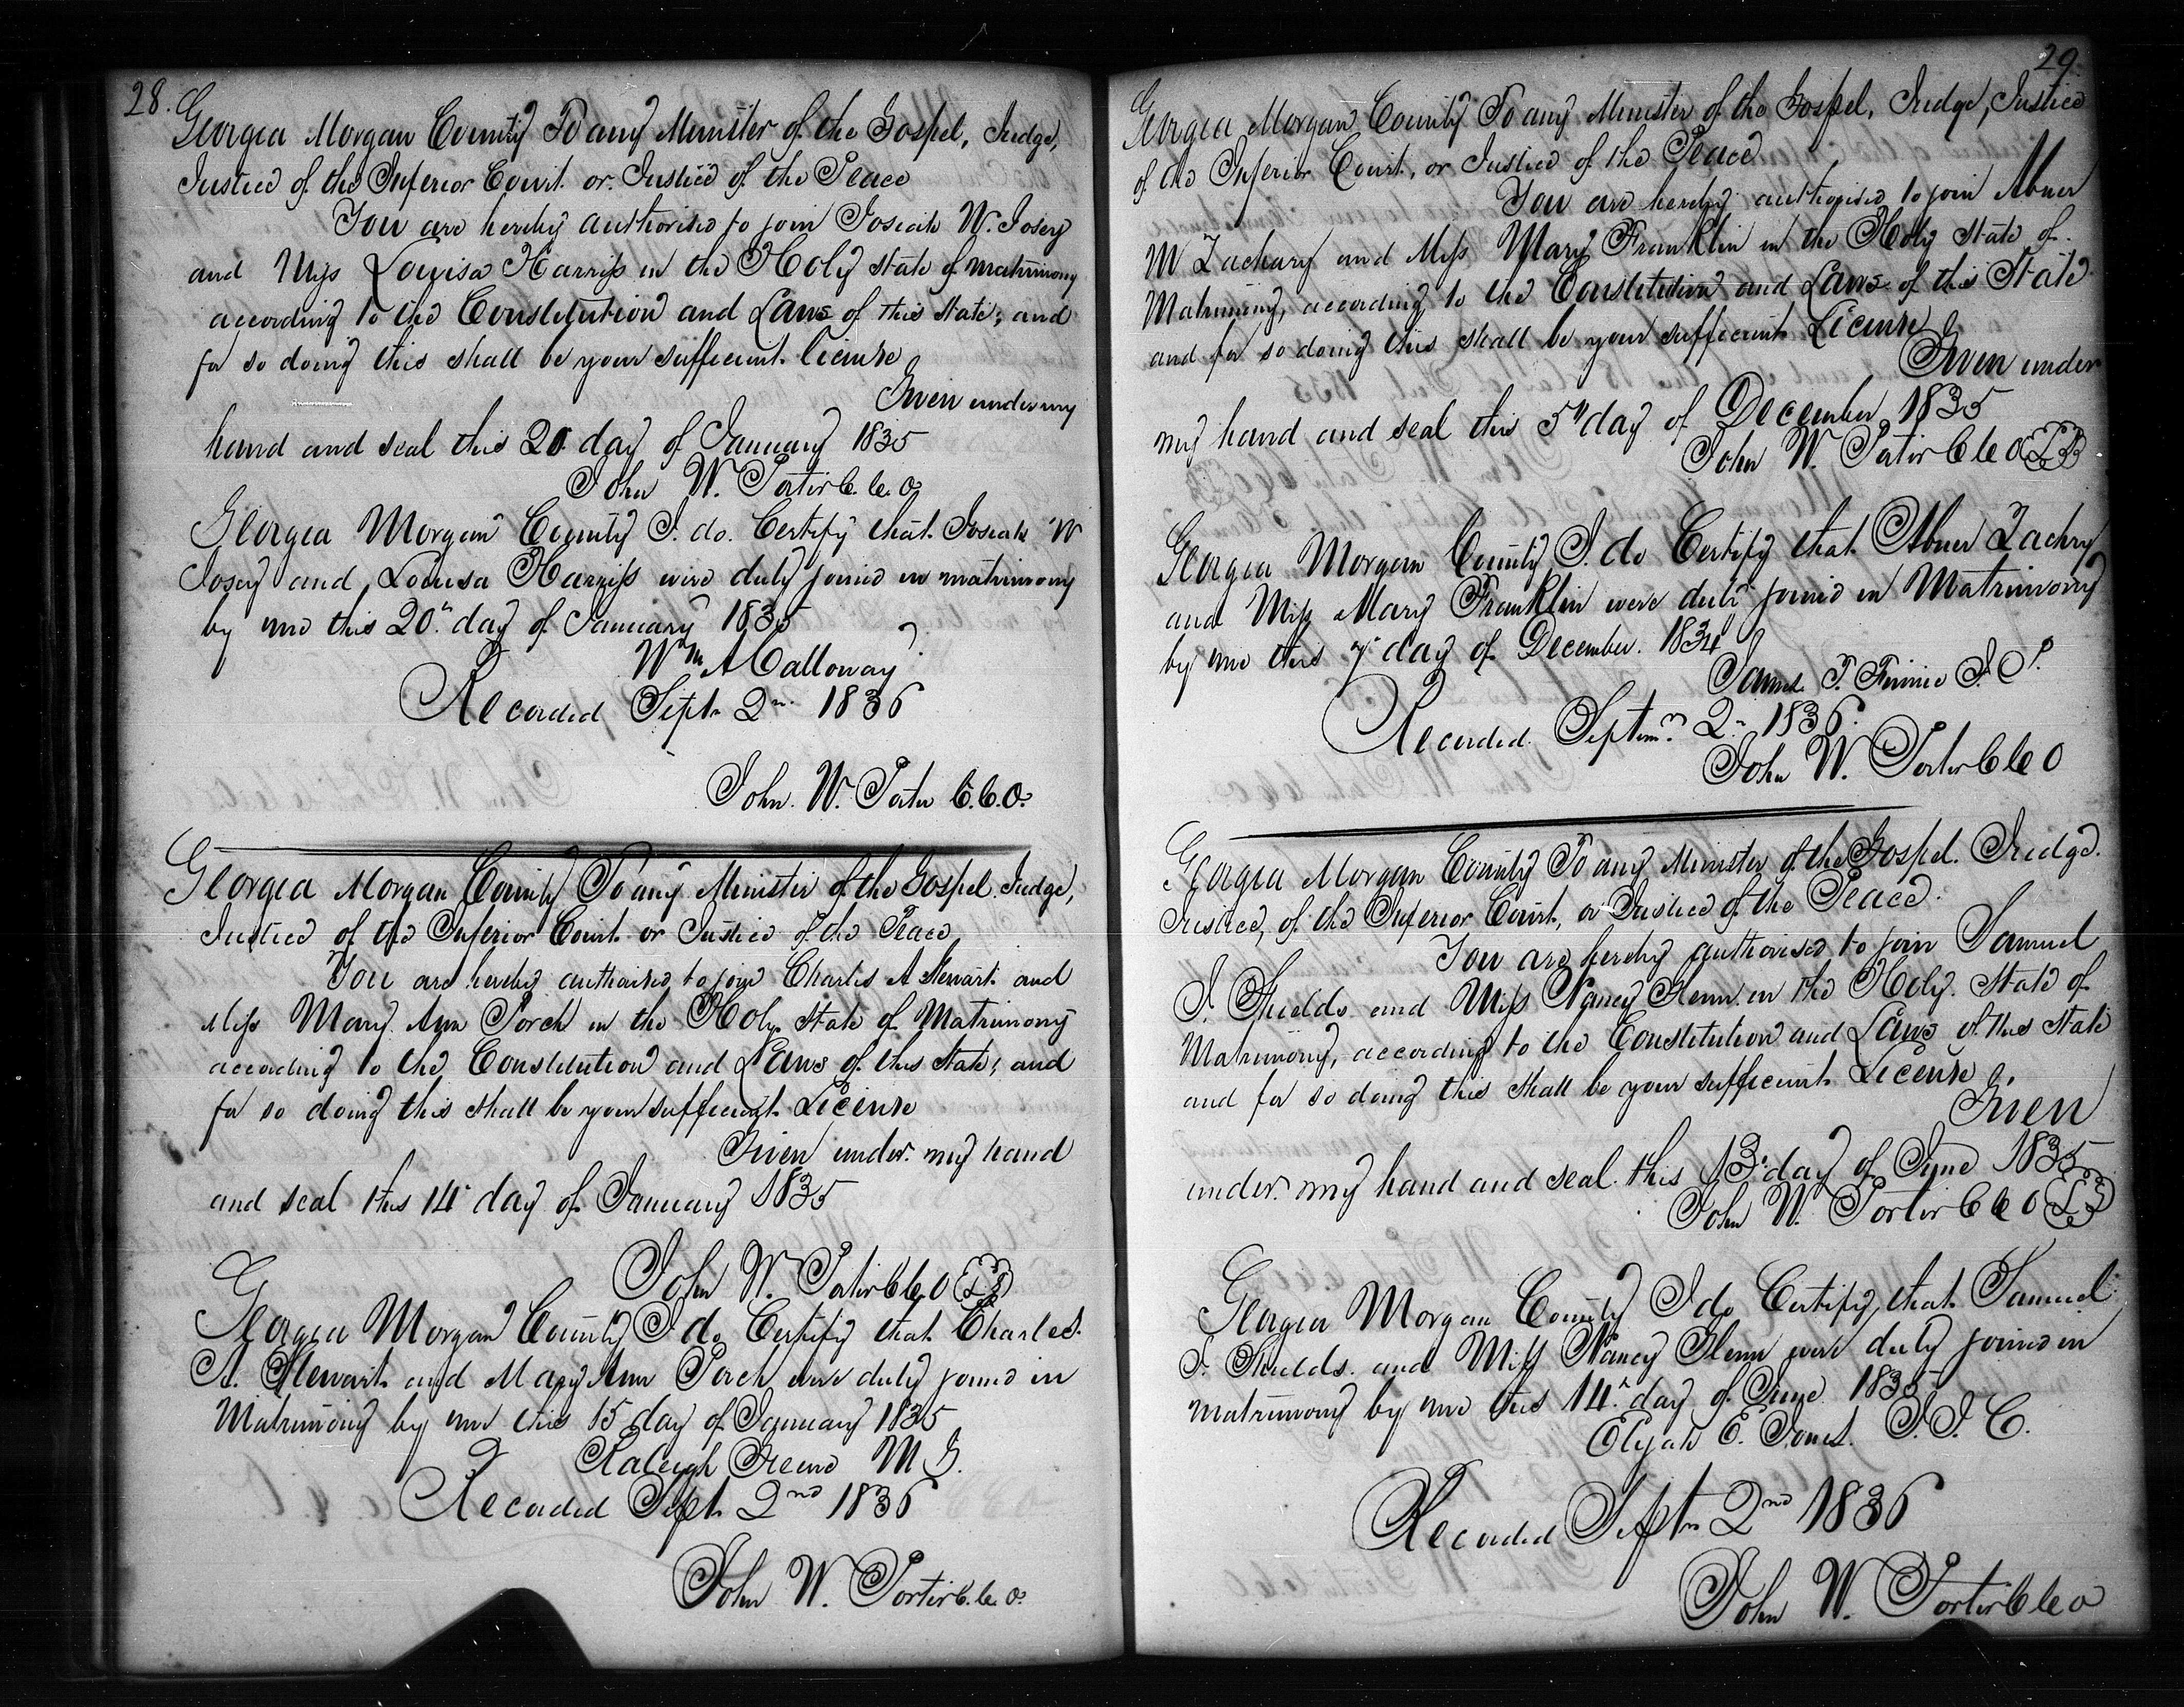 28.
Georgia Morgan County To any Minister of the Gospel, Judge,
Justice of the Inferior Court. or. Justice of the Peace
You are hereby authorised to join Josiah W. Josey
and Miss Louisa Harriss in the Holy State of matrimony
according to the Constitution and Laws of this State; and
for so doing this shall be your sufficient. license
Given under my
hand and seal this 20 day of January 1835
John W. Porter C. C. O.
Georgia Morgan County I. do. Certify that. Josiah W
Josey and Louisa Harriss were duly joined in matrimony
by me this 20th day of January 1835
Wm A Calloway
Recorded Sept. 2nd 1836
John. W. Porter C. C. O.
Georgia Morgan County To any Minister of the Gospel. Judge,
Justice of the Inferior Court or Justice of the Peace
You are hereby authorised to join Charles A Stewart. and
Miss Mary. Ann Porch in the Holy State of Matrimony
according to the Constitution and Laws of this State; and
for so doing this shall be your sufficient. License
Given under. my hand
and seal this 14th day of January 1835
John W. Porter C C O L S
Georgia Morgan County I do Certify that Charles.
A. Stewart. and Mary Ann Porch were duly joined in
Matrimony by me this 15 day of January 1835
Raleigh Greene M G.
Recorded Sept. 2nd 1836
John W. Porter C. C. O.
29.
Georgia Morgan County To any Minister of the Gospel, Judge, Justice
of the Inferior Court, or Justice of the Peace
You are hereby authorised to join Abner
M Zachary and Miss Mary Franklin in the Holy State of
Matrimony, according to the Constitution and Laws of this State
and for so doing this shall be your sufficient License
Given under
my hand and seal this 5th day of December 1835
John W. Porter C C O L S
Georgia Morgan County I. do Certify that Abner Zachry
and Miss Mary Franklin were duly joined in Matrimony
by me this 7th day of December. 1834
Saml. T. J. P.
Recorded. Septem. 2nd 1836.
John W. Porter C C O
Georgia Morgan County To any Minister of the Gospel. Judge.
Justice, of the Inferior Court, or Justice of the Peace.
You are hereby authorised to join Samuel
J. Shields and Miss Nancy Glenn in the Holy. State of
Matrimony, according to the Constitution and Laws of this State
and for so doing this shall be your sufficient License
Given
under. my hand and seal. this 13th day of June 1835
John W. Porter C C O L S
Georgia Morgan County I do Certify, that Samuel
J. Shields. and Miss Nancy Glenn were duly joined in
matrimony by me this 14th day of June 1835
Elijah E. Jones. J. I. C.
Recorded Septm 2nd 1836
John W. Porter C C O